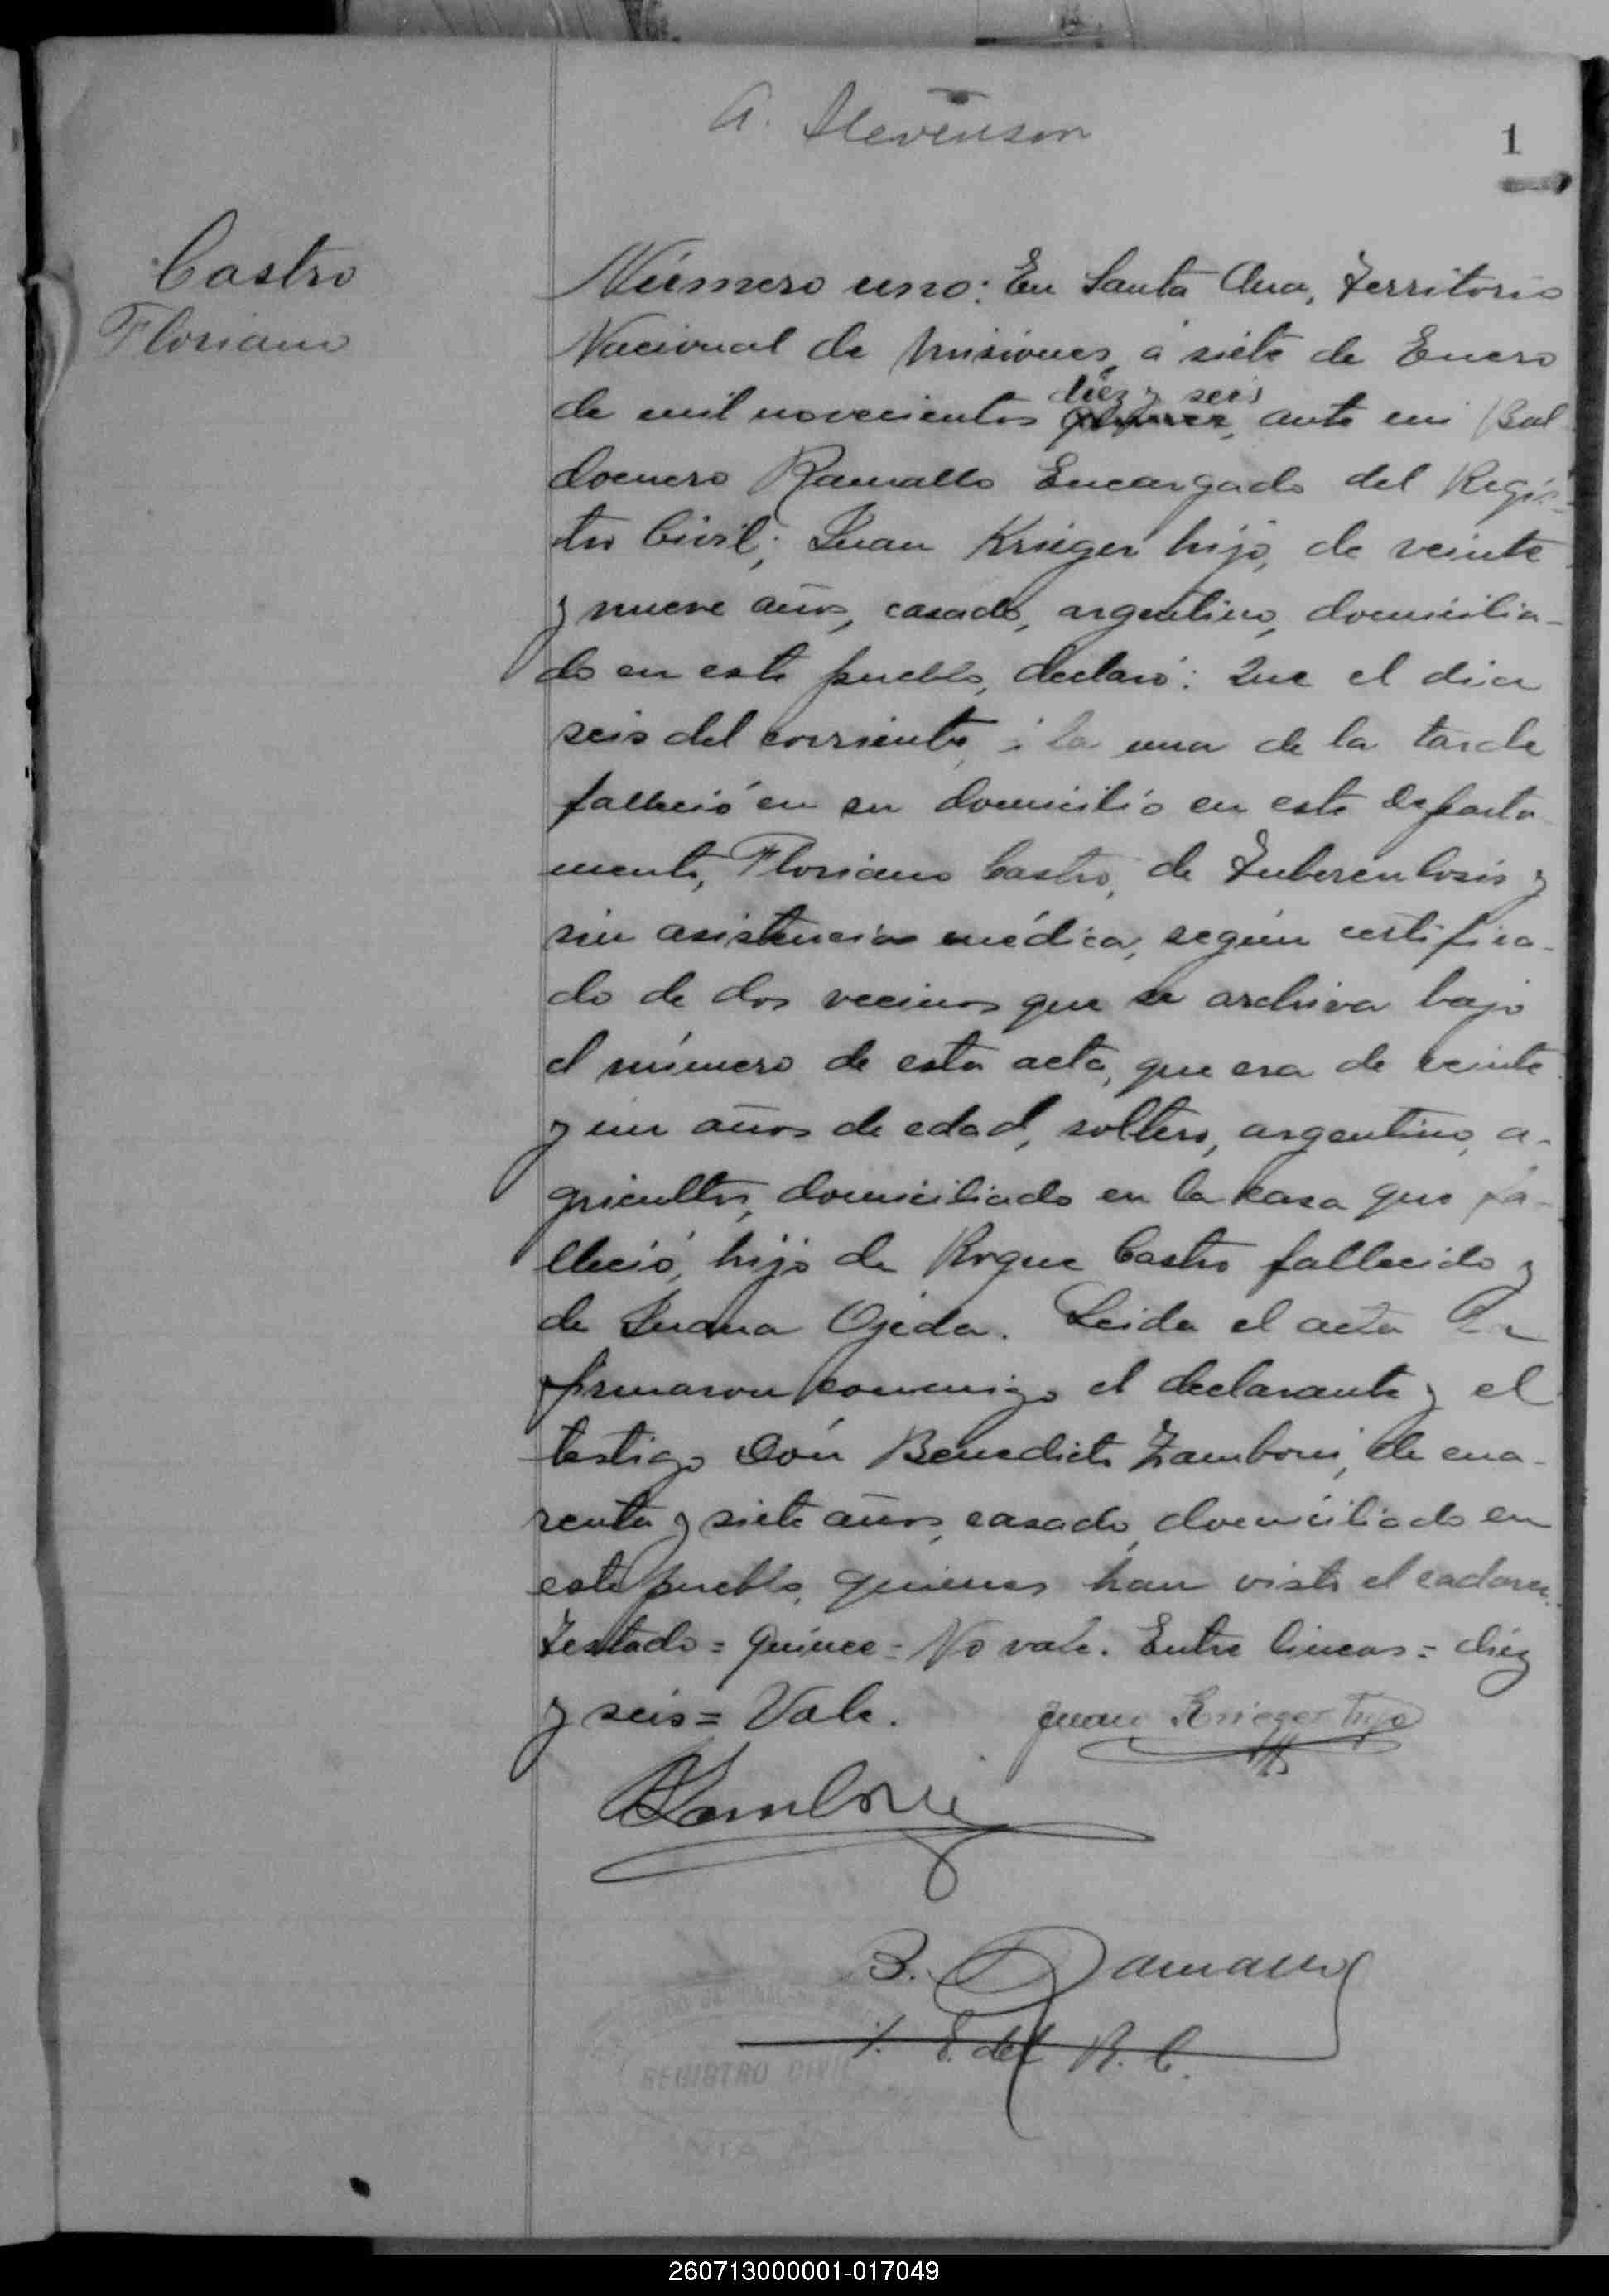 A. Stevenson
1
Castro
Floriano
Número uno: En Santa Ana, Territorio
Nacional de Misiones, á siete de Enero
diez y seis
de mil novecientos quince, ante mi Bal
domero Ramallo Encargado del Regis-
tro Civil; Juan Krieger hijo, de veinte
y nueve años, casado, argentino, domicilia-
do en este pueblo, declaró: Que el dia
seis del corriente, á la una de la tarde
falleció en su domicilio en este departa
mento, Floriano Castro, de Tuberculosis y
sin asistencia médica, según certifica-
do de dos vecinos que se archiva bajo
el número de esta acta, que era de veinte
y un años de edad, soltero, argentino, a-
gricultor, domiciliado en la casa que fa-
lleció, hijo de Roque Castro fallecido y
de Juana Ojeda. Leida el acta la
firmaron conmigo el declarante y el
testigo Don Benedicto Zamboni, de cua-
renta y siete años, casado, domiciliado en
este pueblo, quienes han visto el cadaver.
Testado = Quince = No vale. Entre lineas = diez
y seis = Vale.
Juan Krieger hijo
BZamboni
B. Ramallo
E. del R. C.
REGISTRO CIVIL
260713000001-017049